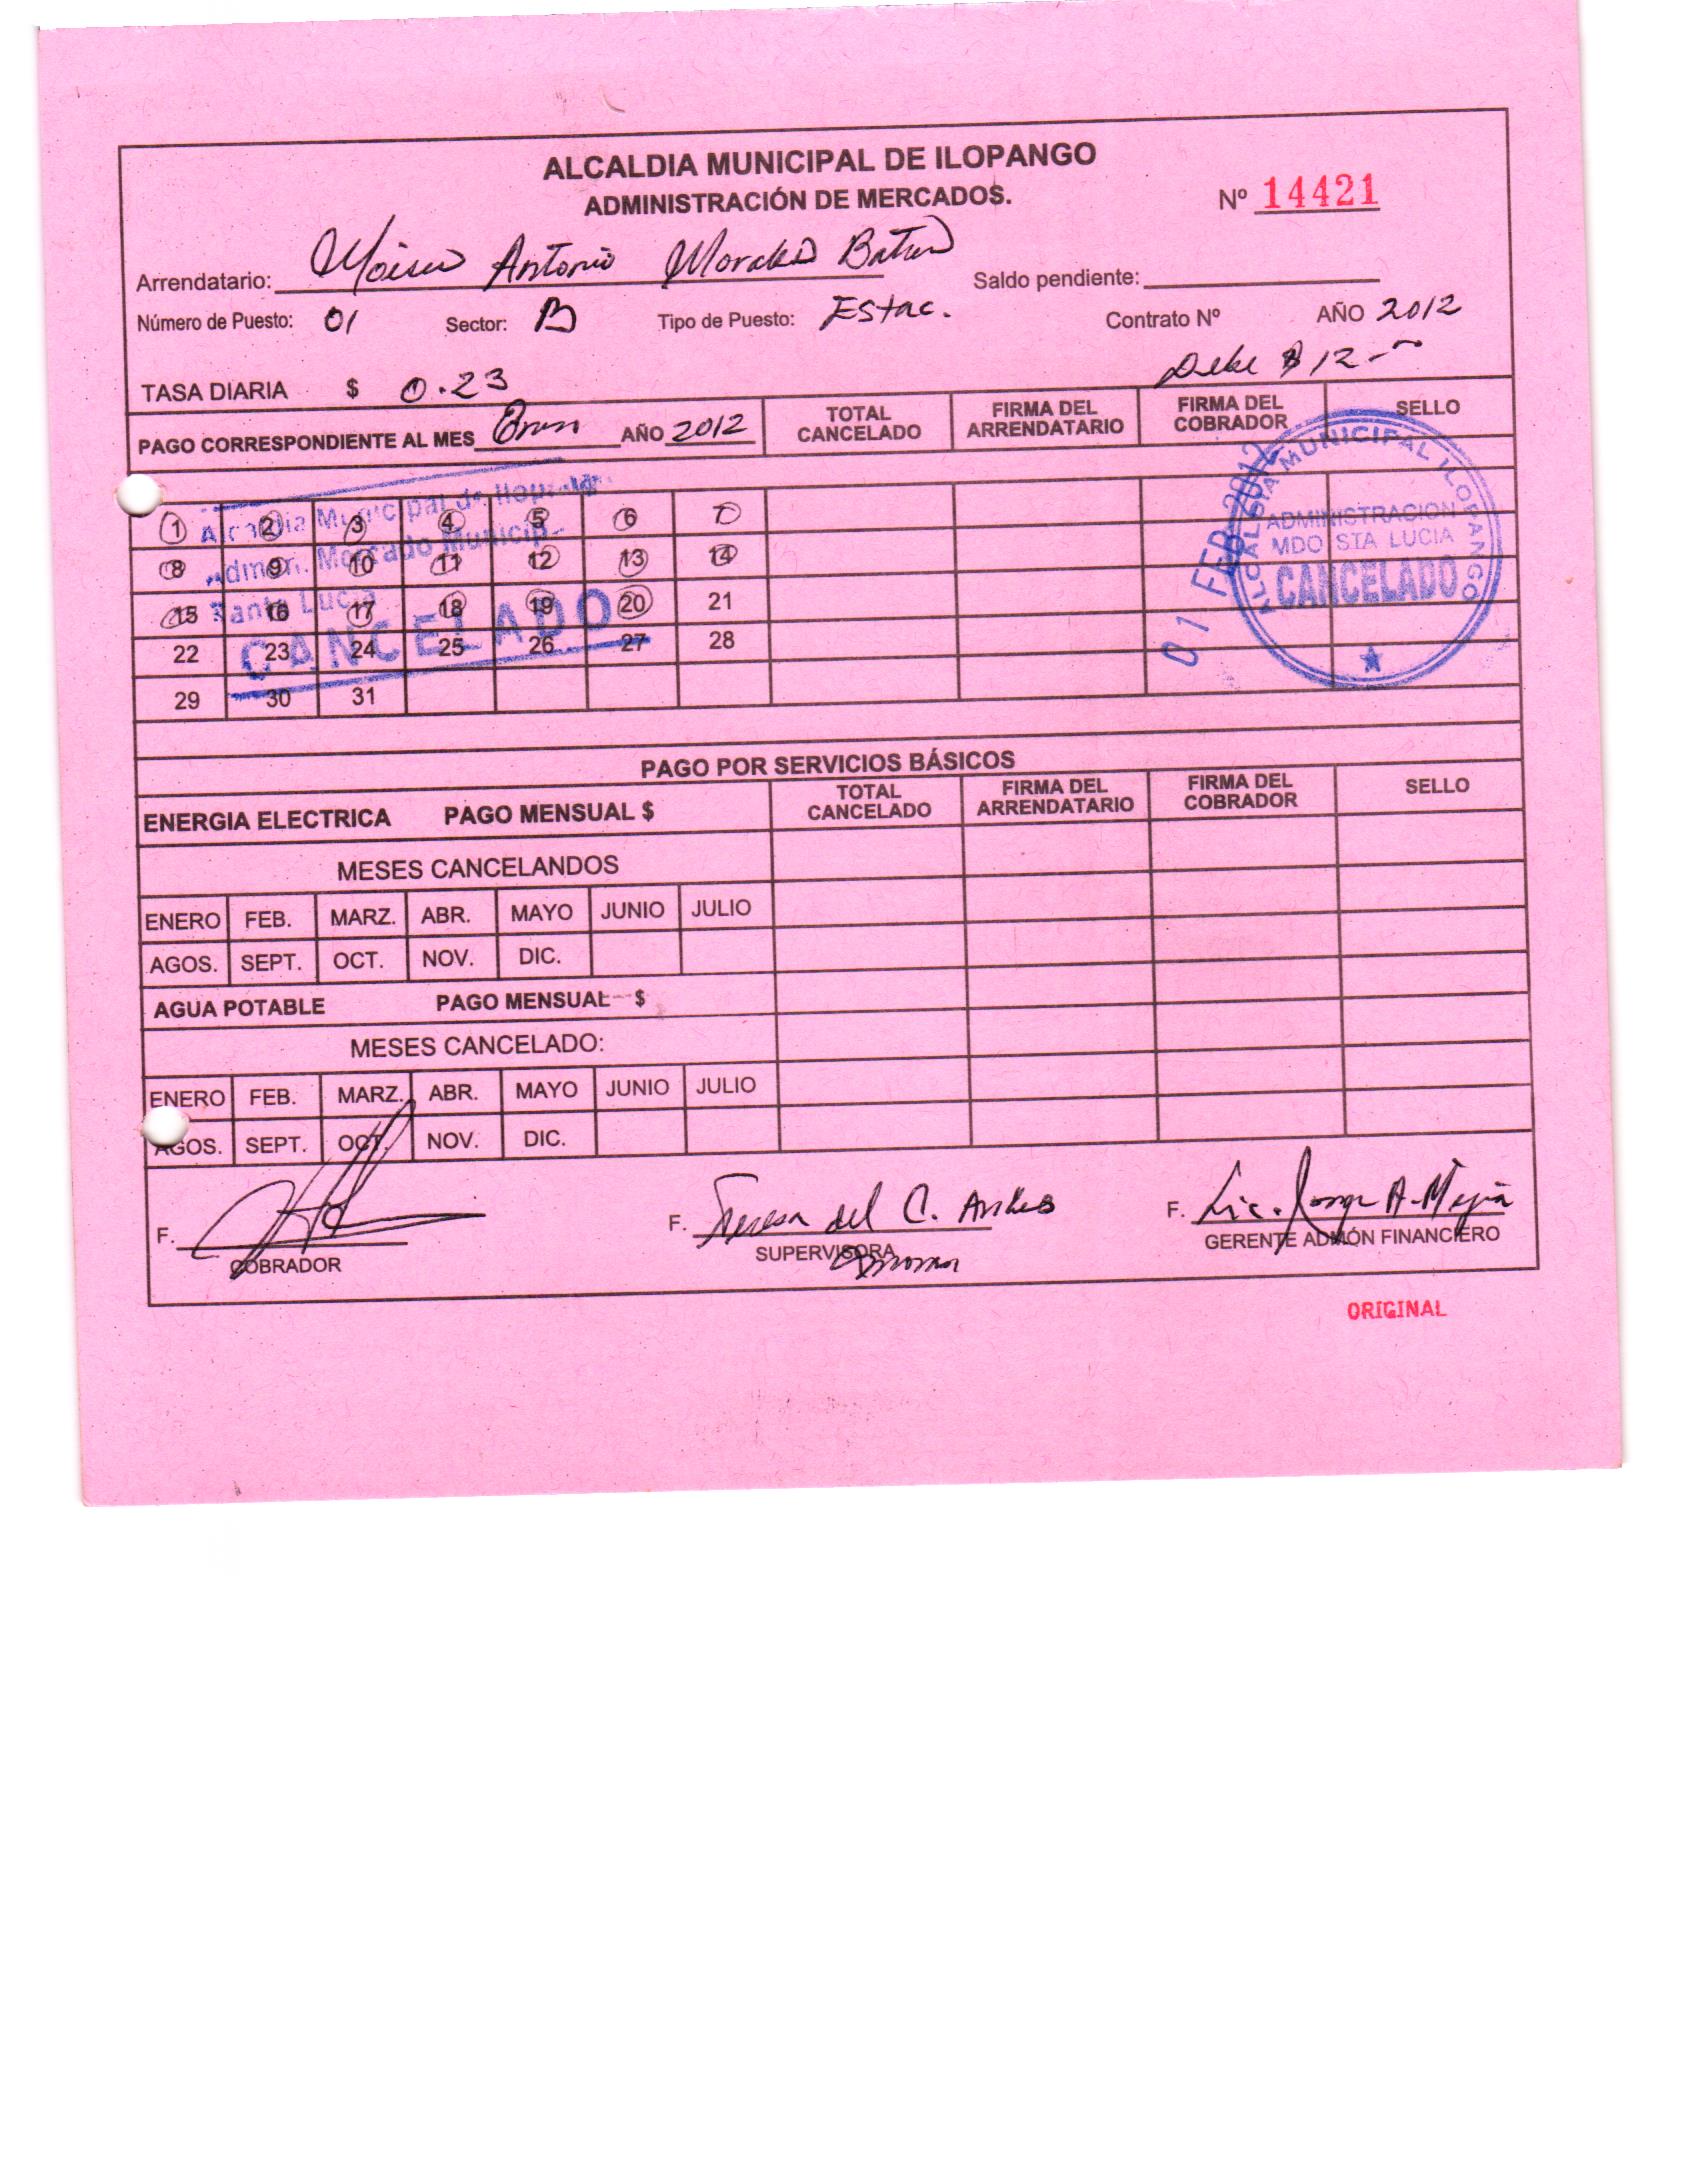 ALCALDIA MUNICIPAL DE ILOPANGO
ADMINISTRACIÓN DE MERCADOS.
Nº 14421
Arrendatario: Antonio Morales Saldo pendiente:
Número de Puesto: 01 Sector: B Tipo de Puesto: Estac. Contrato Nº AÑO 2012
Debe $ 12
TASA DIARIA $ 0.23
PAGO CORRESPONDIENTE AL MES AÑO 2012 TOTAL CANCELADO FIRMA DEL ARRENDATARIO FIRMA DEL COBRADOR SELLO
1 2 3 4 5 6 7
8 9 10 11 12 13 14
15 16 17 18 19 20 21
22 23 24 25 26 27 28
29 30 31
Alcaldia Municipal de Ilopango
Admon. Mercado Municip
Santa Lucia
CANCELADO
01 FEB 2012
ALCALDIA MUNICIPAL ILOPANGO
ADMINISTRACION
MDO STA LUCIA
CANCELADO
PAGO POR SERVICIOS BÁSICOS
ENERGIA ELECTRICA PAGO MENSUAL $ TOTAL CANCELADO FIRMA DEL ARRENDATARIO FIRMA DEL COBRADOR SELLO
MESES CANCELANDOS
ENERO FEB. MARZ. ABR. MAYO JUNIO JULIO
AGOS. SEPT. OCT. NOV. DIC.
AGUA POTABLE PAGO MENSUAL $
MESES CANCELADO:
ENERO FEB. MARZ. ABR. MAYO JUNIO JULIO
AGOS. SEPT. OCT. NOV. DIC.
F. F. Teresa del C. F. Lic. Jorge A. Mejia
COBRADOR SUPERVISORA GERENTE ADMÓN FINANCIERO
ORIGINAL